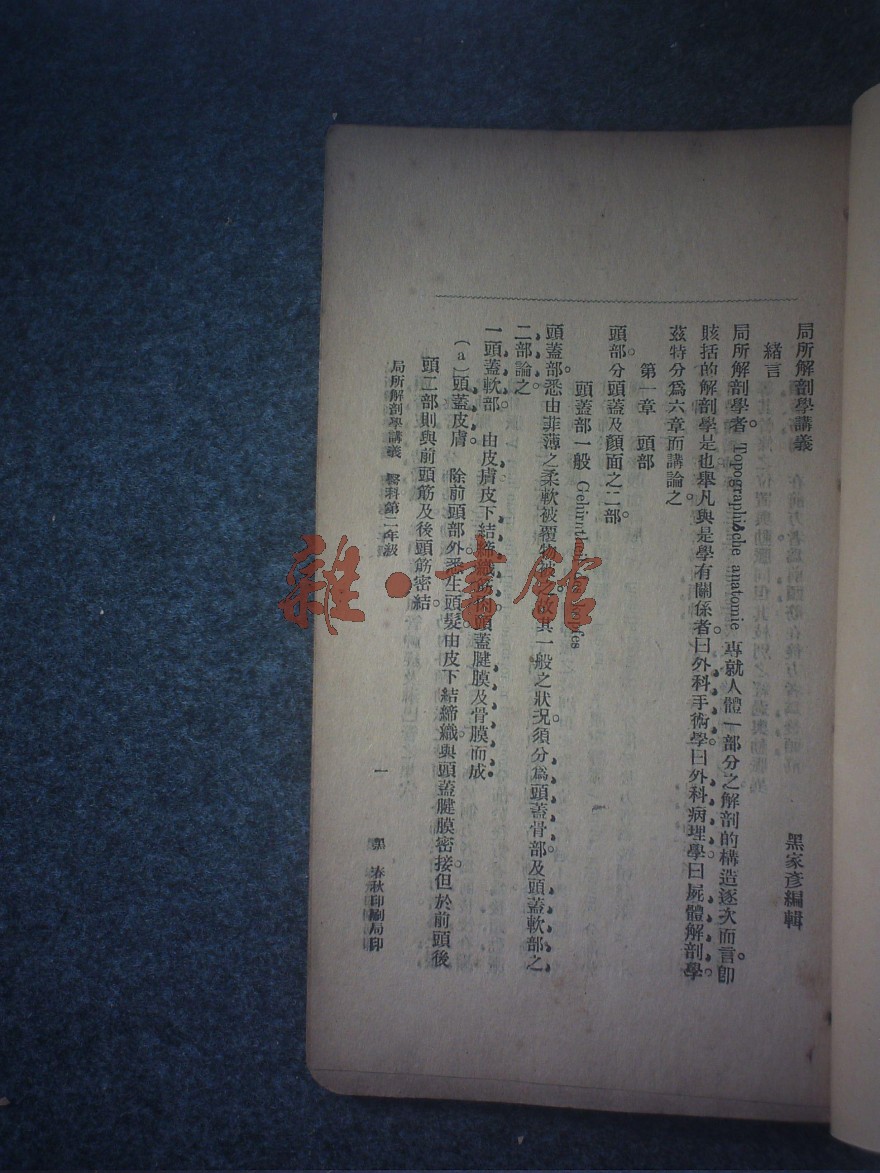 局所解剖學講義 黑家彥編輯
緒言
局所解剖學者。Topographische anatomie 專就人體一部分之解剖的構造逐次而言。卽
賅括的解剖學是也舉凡與是學有關係者。曰外科手術學。曰外科病理學。曰屍體解剖學。
茲特分爲六章而講論之。
第一章 頭部
頭部。分頭蓋及顏面之二部。
頭蓋部一般
頭蓋部。悉由菲薄之柔軟被覆物被之。故其一般之狀况。須分爲頭蓋骨部及頭蓋軟部之
二部論之
一頭蓋軟部。 由皮膚皮下結締織筋肉頭蓋腱膜及骨膜而成
(a)頭蓋皮膚。 除前頭部外悉生頭髮由皮下結締織與頭蓋腱膜密接。但於前頭後
頭二部則與前頭筋及後頭筋密結。
局所解剖學講義 醫科第二年級 一 黑 春秋印刷局印
雜·書館